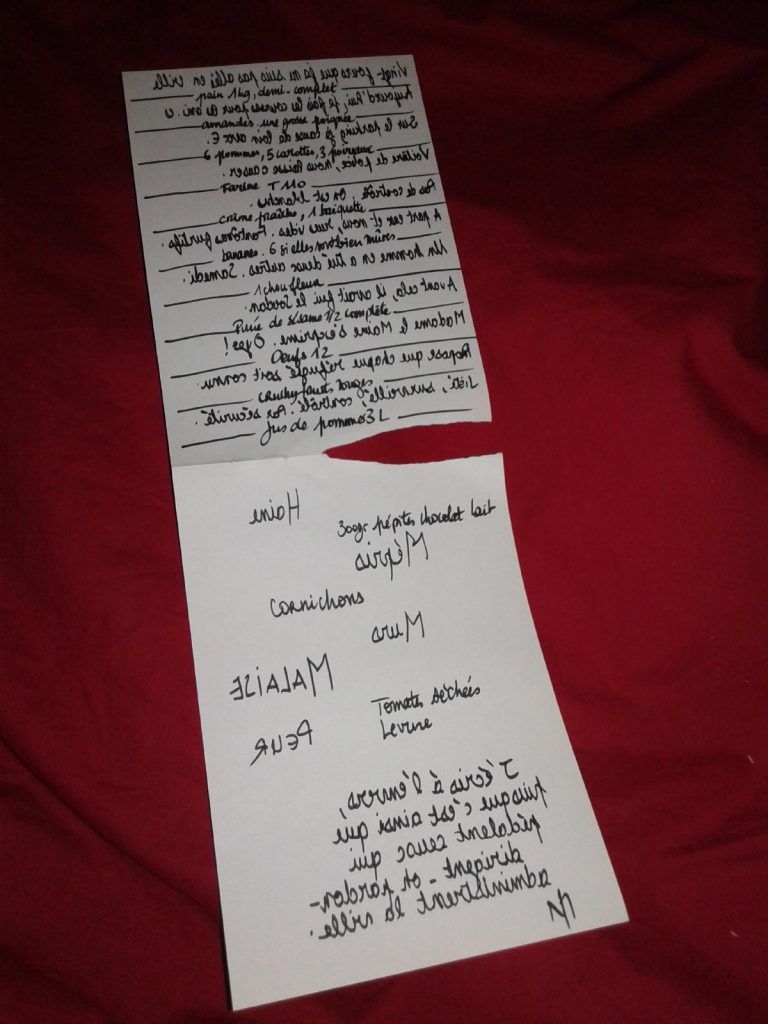 Vingt jours que je ne suis pas allée en ville
pain 1kg, demi-complet
Aujourd'hui, je fais les courses pour un ami.
amandes une grosse poignée
Sur le parking je cause de loin avec E.
6 pommes, 5 carottes, 3 poireaux
Voiture de police, nous laisse causer.
Farine T110
Pas de contrôle. On est blanches.
crème fraîche, 1 barquette
A part eux et nous, rues vides. Fantômes furtifs.
bananes. 6 si elles sont bien mûres
Un homme en a tué deux autres. Samedi.
1 choufleur
Avant cela, il avait fui le Soudan.
Purée de sésame 1/2 complète
Madame le Maire s'exprime. Oyez!
Oeufs 12
Propose que chaque réfugié soit connu
crunchy fruits rouges
Listé, surveillé, contrôlé. Par sécurité.
Jus de pommes 3L
Haine
300gr pépites chocolat lait
Mépris
Cornichons
Murs
MALAISE
Tomates séchées
Levure
PEUR
J'écris à l'envers,
puisque c'est ainsi que
pédalent ceux qui
dirigent - oh pardon -
administrent la ville.